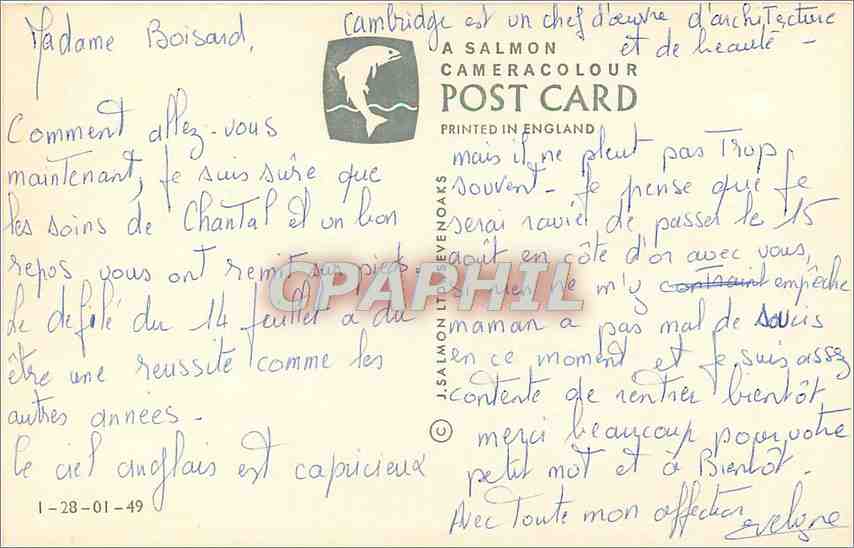 Cambridge est un chef d'œuvre d'architecture
et de beauté -
Madame Boisard,
A SALMON
CAMERACOLOUR
POST CARD
PRINTED IN ENGLAND
Comment allez-vous
maintenant, je suis sûre que
les soins de Chantal et un bon
repos vous ont remit sur pieds.
Le defilé du 14 juillet a du
être une reussite comme les
autres années -
le ciel anglais est capricieux
mais il ne pleut pas trop
souvent - Je pense que je
serai ravie de passer le 15
août en côte d'or avec vous,
si rien ne m'y contraint empêche
maman a pas mal de soucis
en ce moment et je suis assez
contente de rentrer bientôt,
merci beaucoup pour votre
petit mot et à Bientôt.
Avec toute mon affection
Evelyne
© J. SALMON LTD. SEVENOAKS
1-28-01-49
CPAPHIL